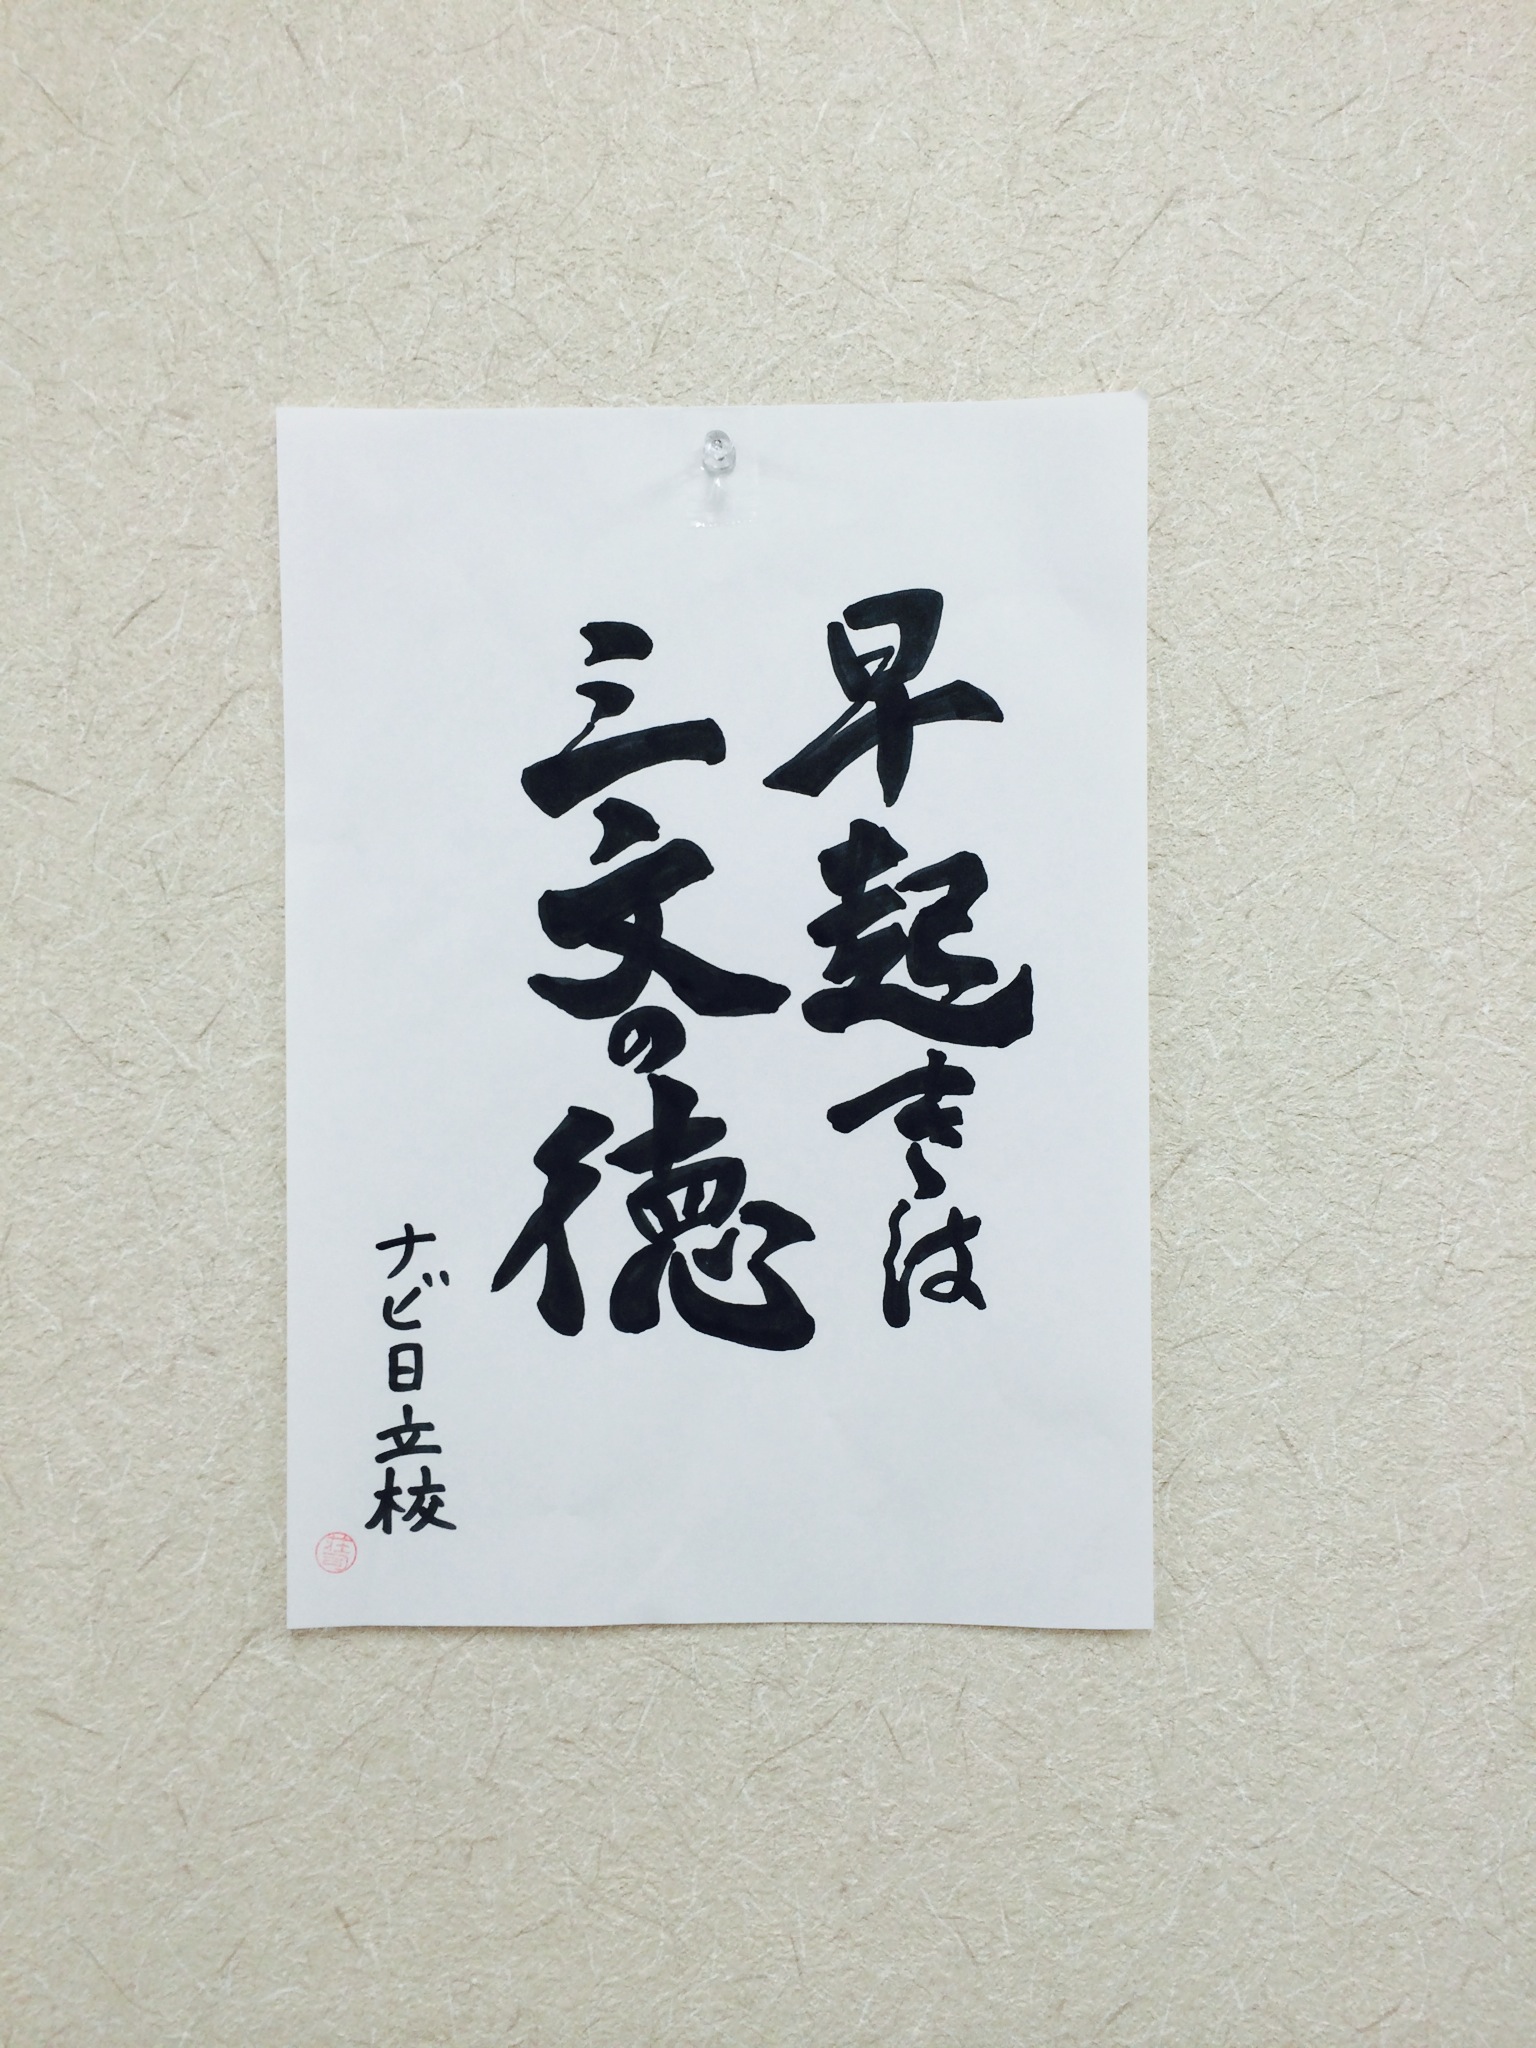 早起きは
三文の徳
ナビ日立校
荘司